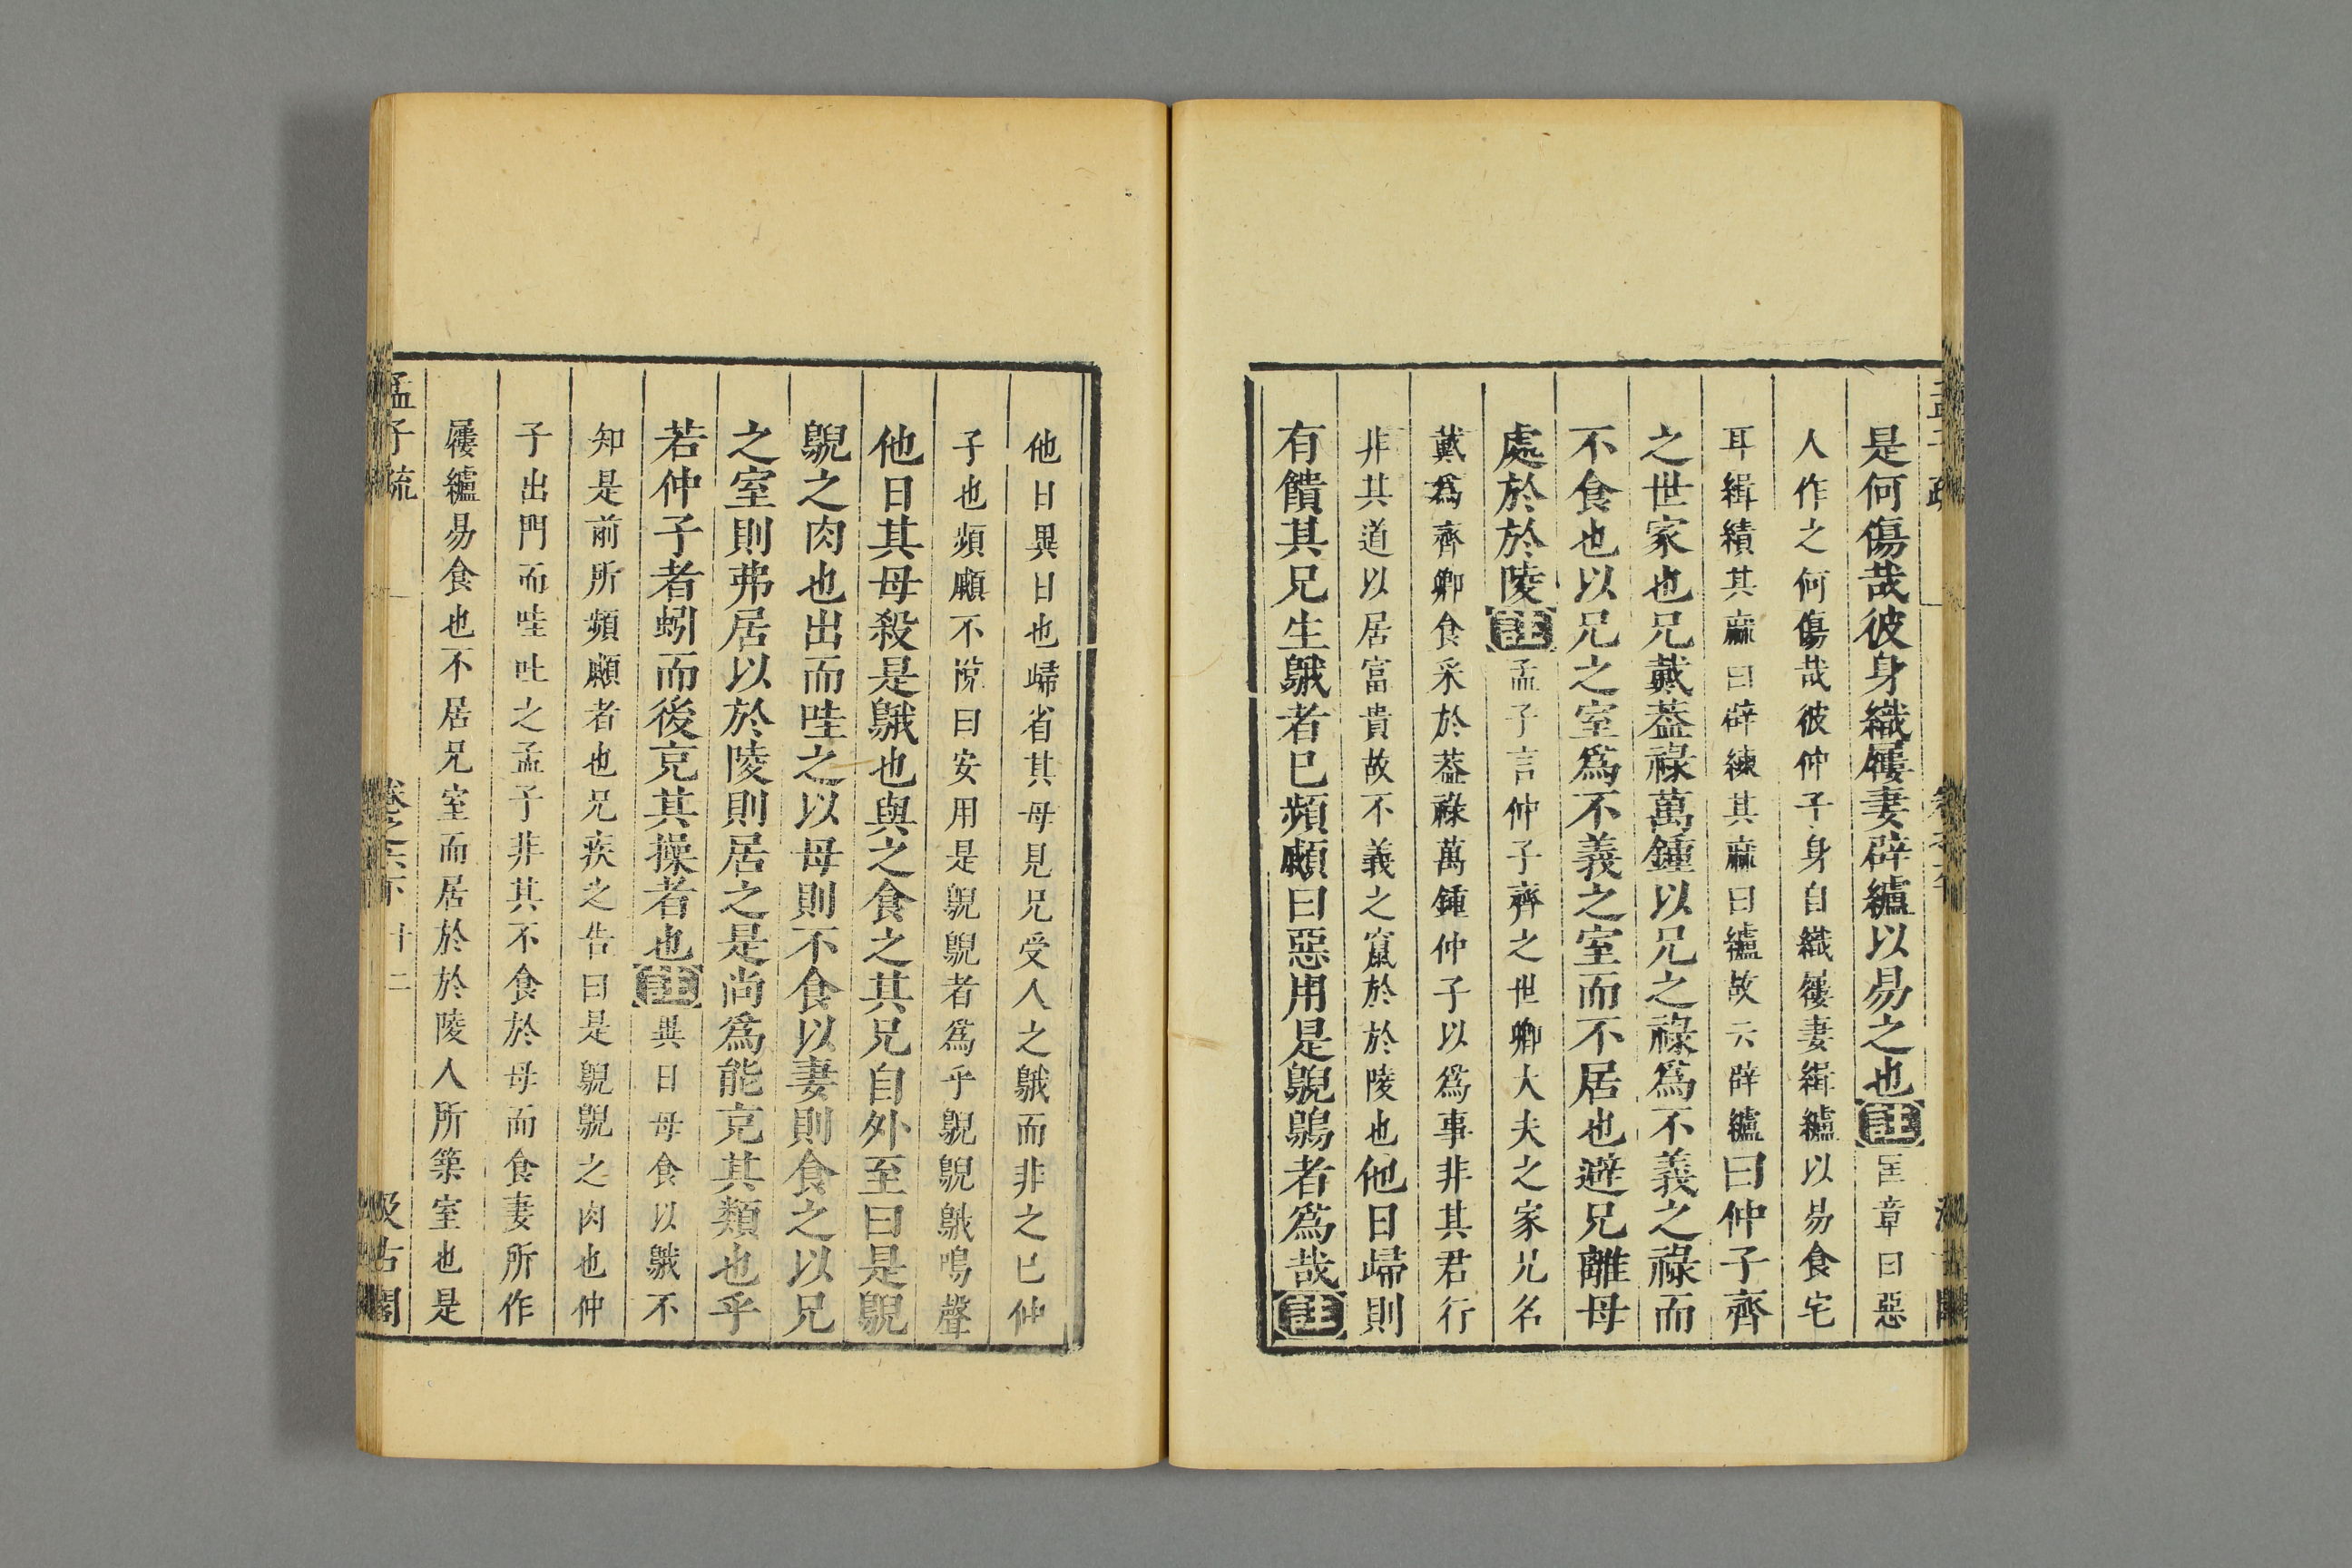 是何傷哉彼身織屨妻辟纑以易之也註匡章曰惡
人作之何傷哉彼仲子身自織屨妻緝纑以易食宅
耳緝績其麻曰辟練其麻曰纑故云辟纑曰仲子齊
之世家也兄戴葢祿萬鍾以兄之祿爲不義之祿而
不食也以兄之室爲不義之室而不居也避兄離母
處於於陵註孟子言仲子齊之世卿大夫之家兄名
戴爲齊卿食采於葢祿萬鍾仲子以爲事非其君行
非其道以居富貴故不義之竄於於陵也他日歸則
有饋其兄生鵞者已頻顣曰惡用是鶃鶃者爲哉註
他日異日也歸省其母見兄受人之鵞而非之已仲
子也頻顣不悅曰安用是鶃鶃者爲乎鶃鶃鵞鳴聲
他日其母殺是鵞也與之食之其兄自外至曰是鶃
鶃之肉也出而哇之以母則不食以妻則食之以兄
之室則弗居以於陵則居之是尚爲能充其類也乎
若仲子者蚓而後充其操者也註異日母食以鵞不
知是前所頻顣者也兄疾之告曰是鶃鶃之肉也仲
子出門而哇吐之孟子非其不食於母而食妻所作
屨纑易食也不居兄室而居於於陵人所築室也是
孟子疏 卷之六下 十二 汲古閣